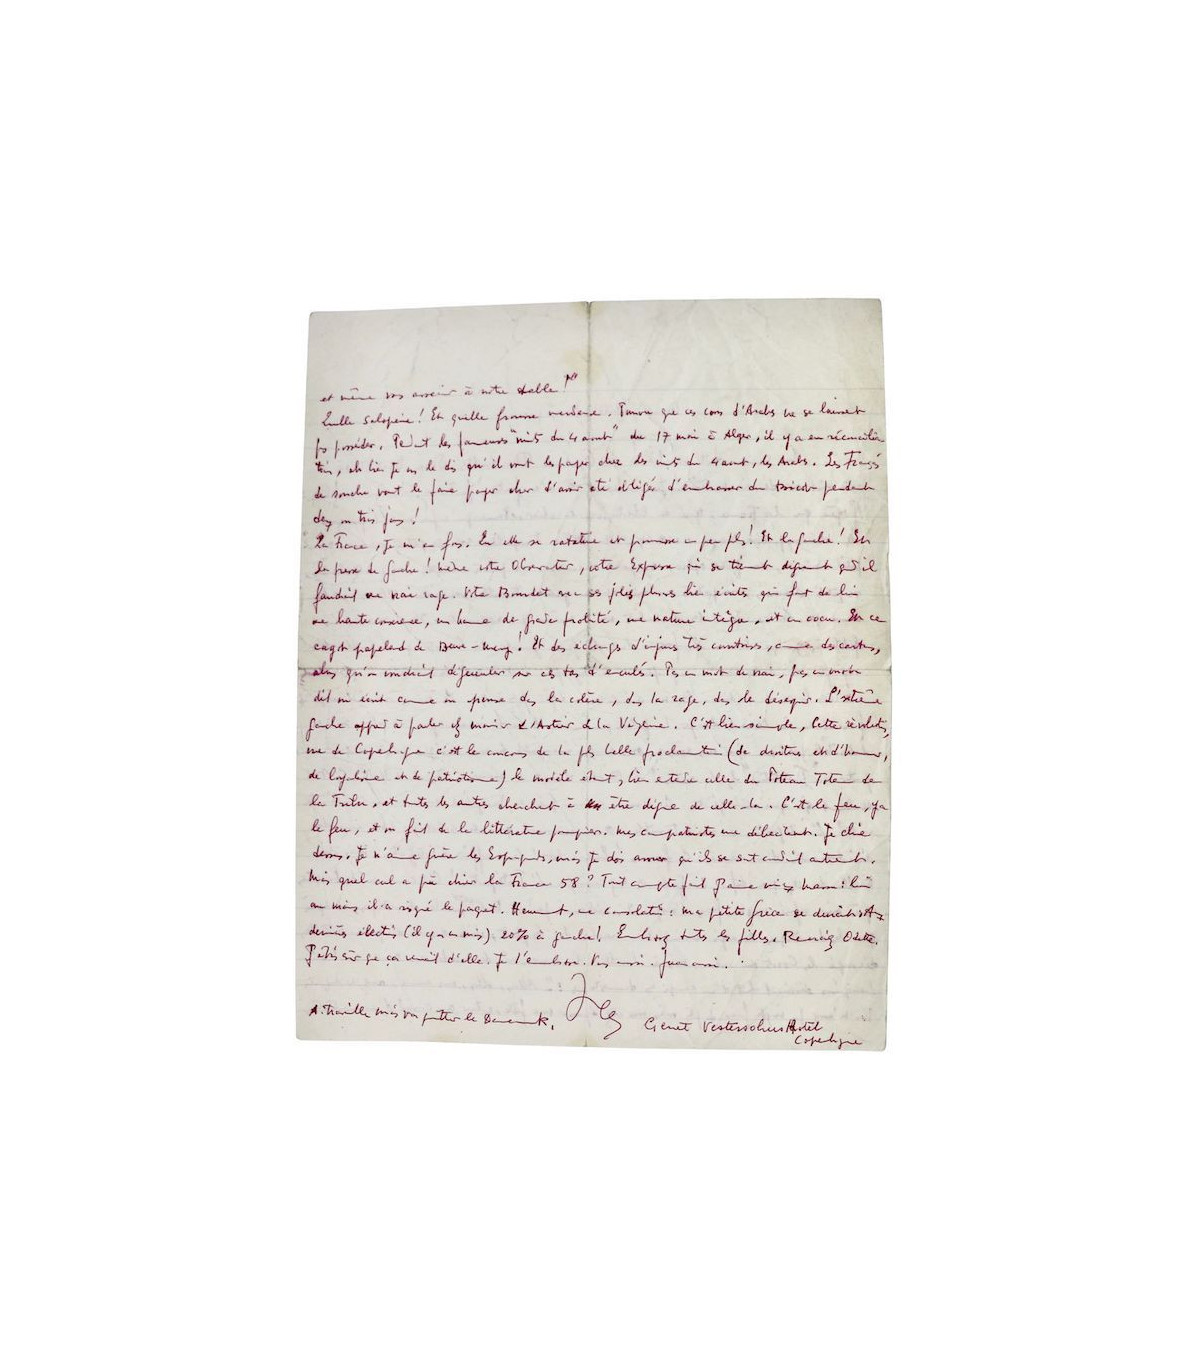 et même vous asseoir à notre table!"
Quelle saloperie! Et quelle frousse merdeuse. Pourvu que ces cons d'Arabes ne se laissent
pas posséder. Pendant les fameuses "nuits du 4 août" du 17 mai à Alger, il y a eu réconcilia
tion, eh bien je vous le dis qu'il vont les payer cher des nuits du 4 août, les Arabes. Les Français
de souche vont le faire payer cher d'avoir été obligés d'embrasser du bicot pendant
deux ou trois jours!
La France, je m'en fous. Qu'elle se ratatine et pourrisse un peu plus! Et la gauche! Et
la presse de gauche! même votre Observateur, votre Express qui se tiennent dignement quand il
faudrait une vraie rage. Votre Bourdet avec ses jolies phrases bien écrites qui font de lui
une haute conscience, un homme de grande probité, une nature intègre, et un cocu. Et ce
cagot papelard de Beuve-Mery! Et des échanges d'injures très courtoises, comme des cartes,
alors qu'on voudrait dégueuler sur ces tas d'enculés. Pas un mot de vrai, pas un mot
dit ni écrit comme on pense dans la colère, dans la rage, dans le désespoir. L'extrême
gauche apprend à parler chez d'Astier de la Vigerie. C'est bien simple, cette révolution,
vue de Copenhague c'est le concours de la plus belle proclamation (de droiture et d'honneur,
de loyalisme et de patriotisme) le modèle étant, bien entendu celle du Poteau Totem de
la Tribu, et toutes les autres cherchent à être digne de celle-la. C'est le feu, y a
le feu, et on fait de la littérature pompier. Mes compatriotes me débectent. Je chie
dessus. Je n'aime guère les Espagnols, mais je dois avouer qu'ils se sont conduit autrement.
Mais quel cul a pu chier la France 58? Tout compte fait j'aime mieux Massu: lui
au moins il a risqué le paquet. Heureusement, une consolation: ma petite Grèce se
dernières élections (il y a un mois) 20% à gauche! Embrassez toutes les filles. Remerciez Odette.
J'étais sûr que ça venait d'elle. Je l'embrasse. Vous aussi.
A. travaille mais va quitter le Danemark.
Genet Vestersohus Hotel
Copenhague